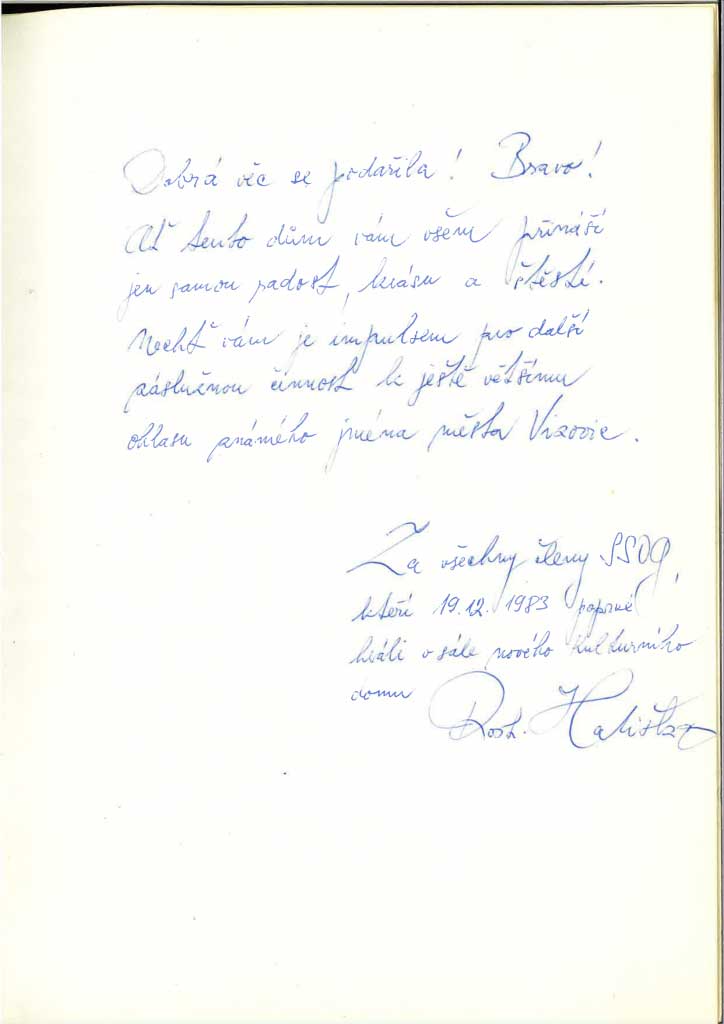 Dobrá věc se podařila! Bravo!
Ať tento dům vám všem přináší
jen samou radost, krásu a štěstí.
Nechť vám je impulsem pro další
záslužnou činnost k ještě většímu
ohlasu známého jména města Vizovic.
Za všechny členy SSOG,
kteří 19.12.1983 poprvé
hráli v sále nového kulturního
domu
Rost. Hališka